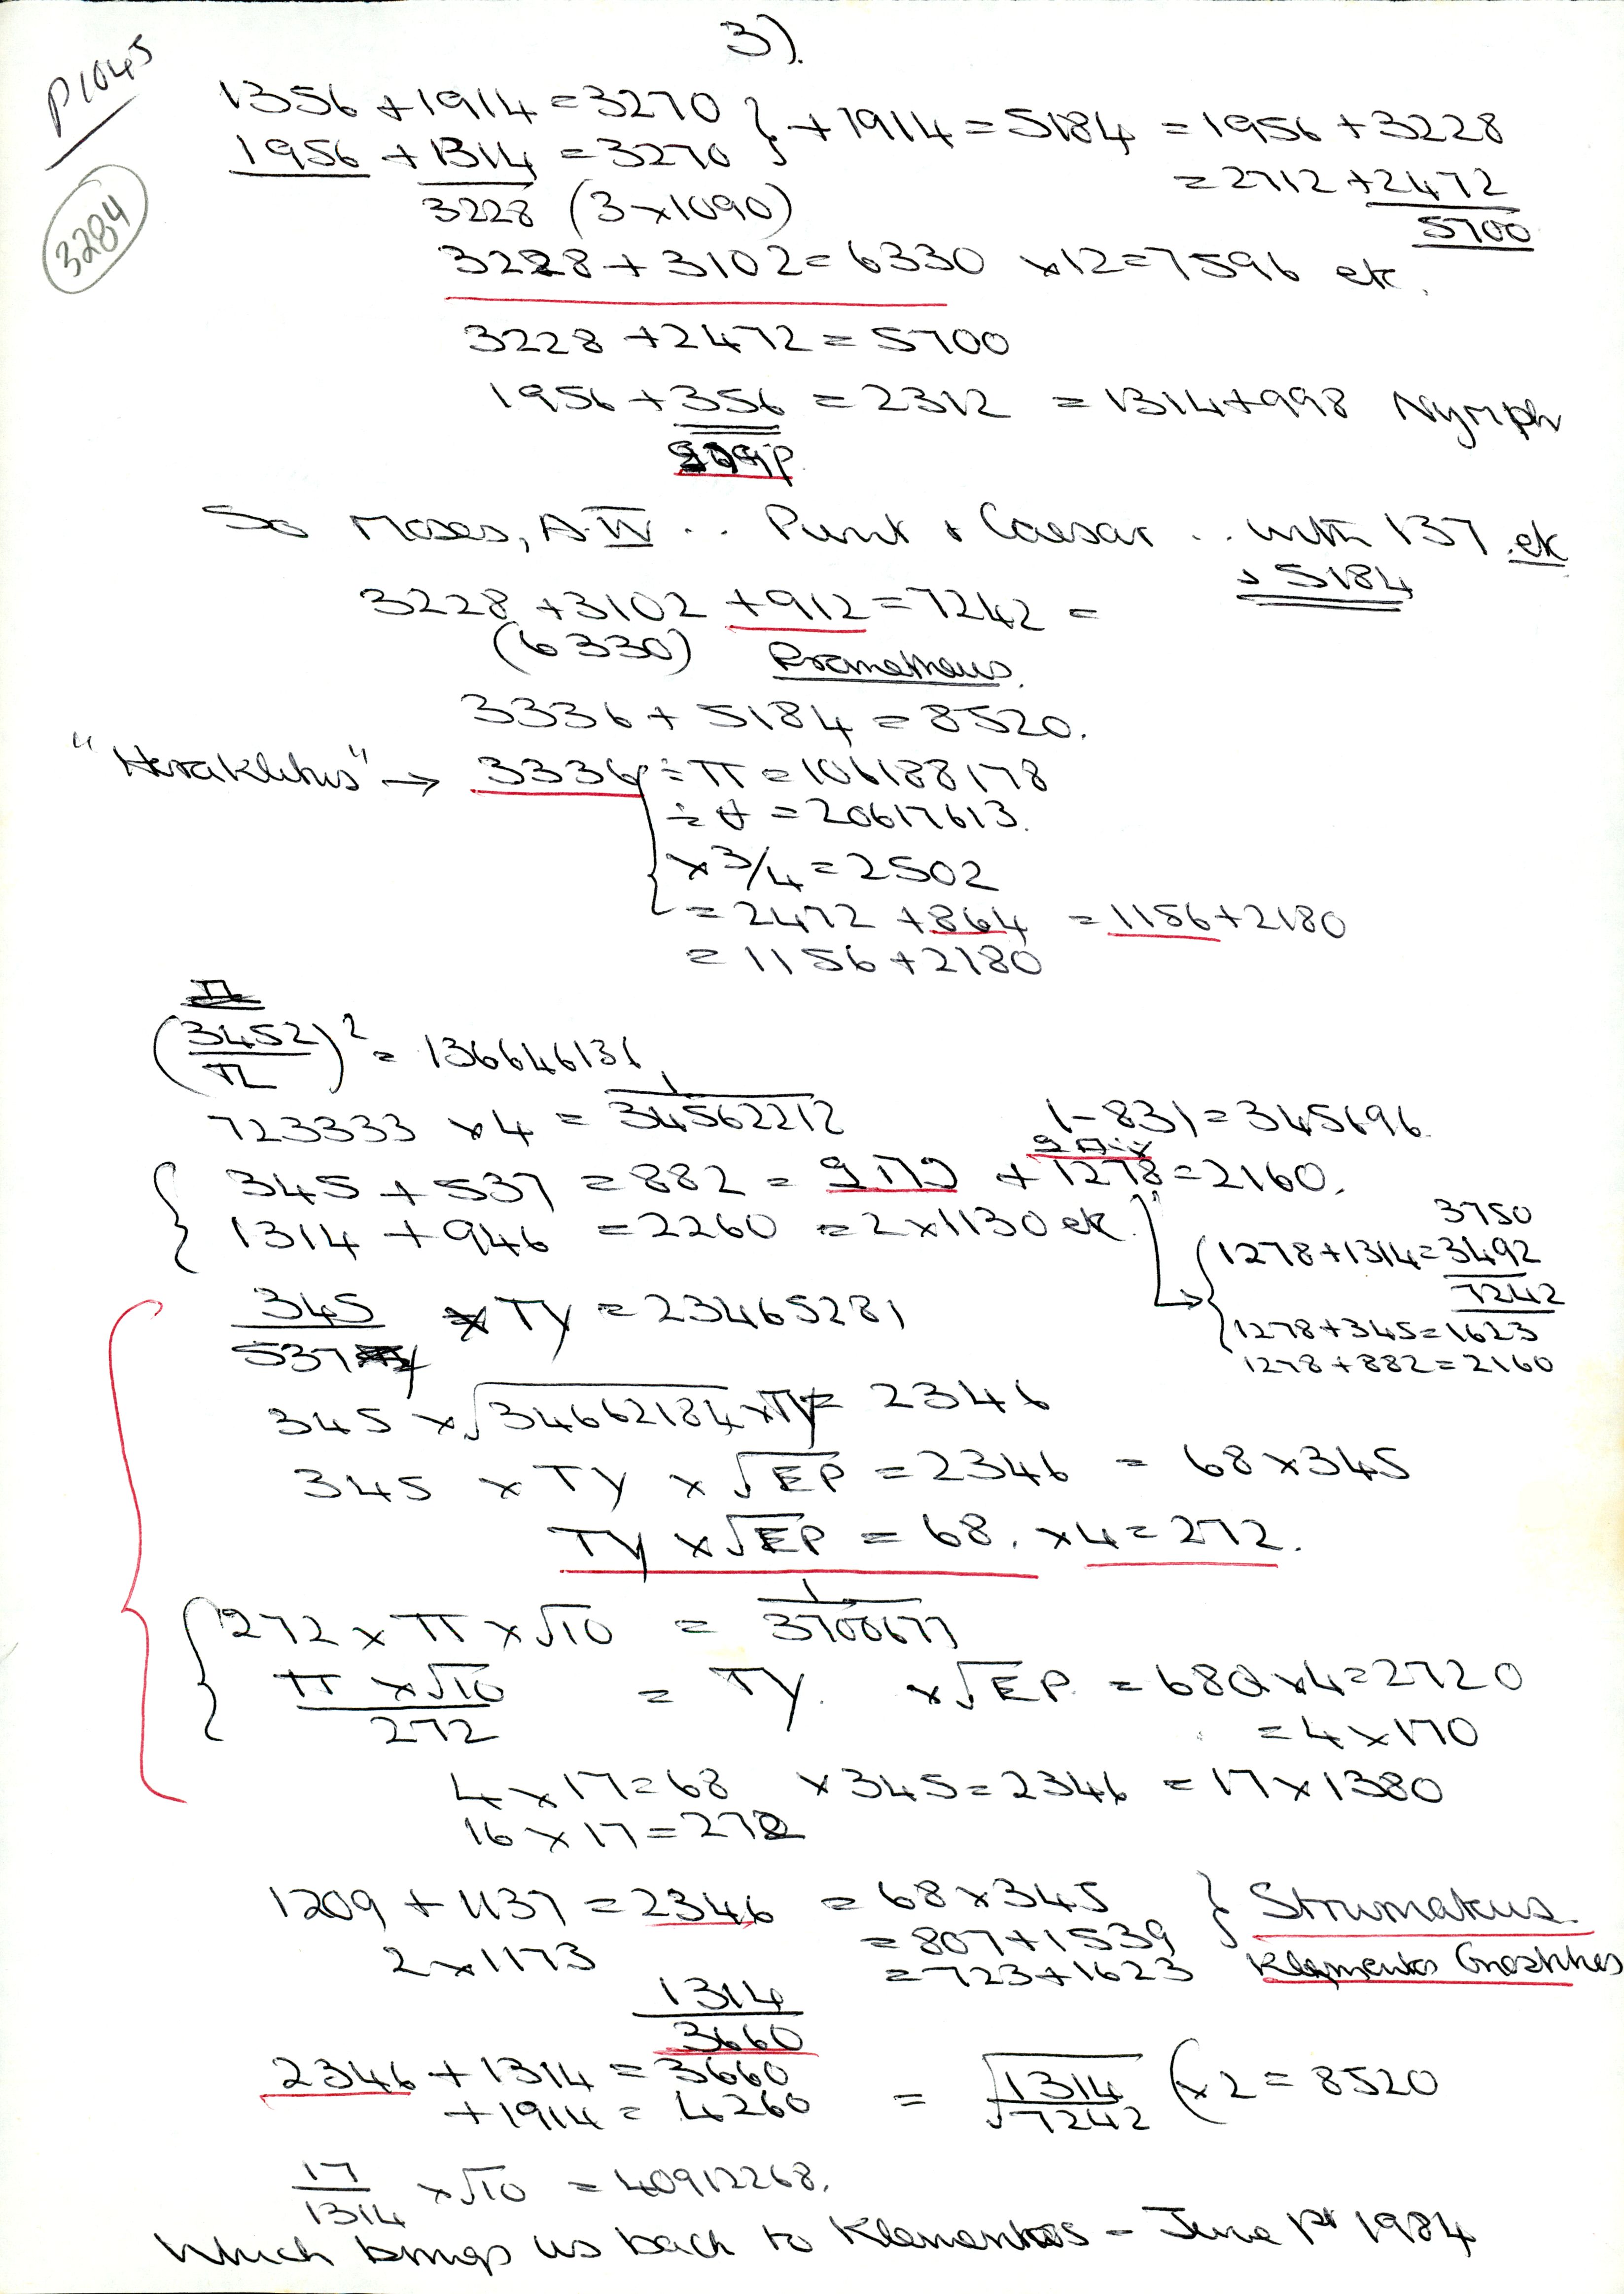 3).
P1045
3284
1356 + 1914 = 3270 } + 1914 = 5184 = 1956 + 3228
1956 + 1314 = 3270 = 2712 + 2472
3228 (3 x 1090) 5700
3228 + 3102 = 6330 x 12 = 7596 etc.
3228 + 2472 = 5700
1956 + 356 = 2312 = 1314 + 998 Nymph
So Moses, A-W .. Punt + Caesar .. with 137 etc
5184
3228 + 3102 + 912 = 7242 =
(6330) Prometheus.
3336 + 5184 = 8520.
"Heraklitus" → 3336 ÷ π = 106188178
= 20617613.
x 3/4 = 2502
= 2472 + 864 = 1156 + 2180
= 1156 + 2180
(3452/π)² = 136646131
723333 x 4 = 1/34562212 (-83) = 345696
{ 345 + 537 = 882 = + 1278 = 2160.
1314 + 946 = 2260 = 2 x 1130 etc.
3750
{ 1278 + 1314 = 3492
7242
1278 + 345 = 1623
1278 + 882 = 2160
345/537 x TY = 23465281
345 x √34662184 x TY = 2346
345 x TY x √EP = 2346 = 68 x 345
TY x √EP = 68. x 4 = 272.
{ 272 x π x √10 = 1/3700677
π x √10/272 = TY. x √EP = 680 x 4 = 2720
= 4 x 170
4 x 17 = 68 x 345 = 2346 = 17 x 1380
16 x 17 = 272
1209 + 1137 = 2346 = 68 x 345 } Strumateus.
2 x 1173 = 807 + 1539
= 723 + 1623 Klementos Gnostikos
1314
3660
2346 + 1314 = 3660
+ 1914 = 4260 = √1314/√7242 (x 2 = 8520
17/1314 x √10 = 40912268.
Which brings us back to Klementos - June 1st 1984